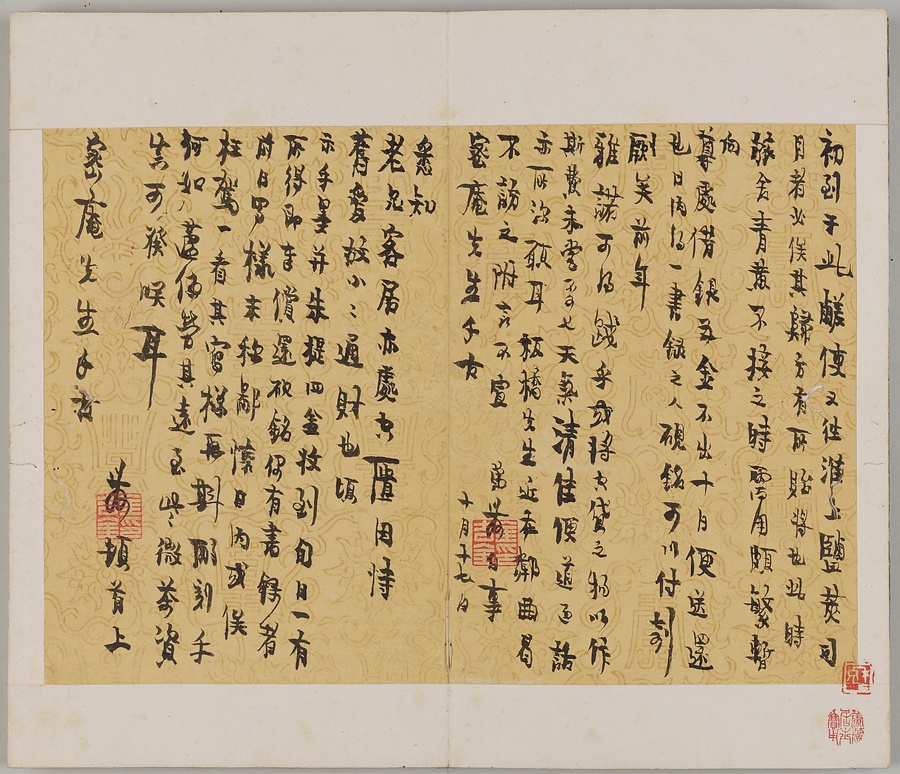 初到于此鹺使又往海上鹽莢司
月者必俟其歸方有所貽將也此時
敝舍青黃不接之時兩用頗繁暫
向
尊處借銀五金不出十月便送還
也日內得一書錄之人硯銘可以付剞
劂矣前年
雅諾可得踐乎或將此貸之物以作
斯費未審可否也天氣清佳便道過話
亦所深願耳板橋先生近在鄰曲曷
不訪之附言不宣
弟農白事
十月十七日
密庵先生千古
愛知
老兄客居亦處貧匱因恃
舊愛故小小通財也頃
示手墨并朱提四金收到旬日一有
所得即奉償還硯銘偶有書錄者
前日寫樣本稔鄙懷日內或俟
枉駕一看其寫樣再斟酌刻手
何如蘆使勞其遠至此微茶資
真可發咲耳
農頓首上
密庵先生手啟